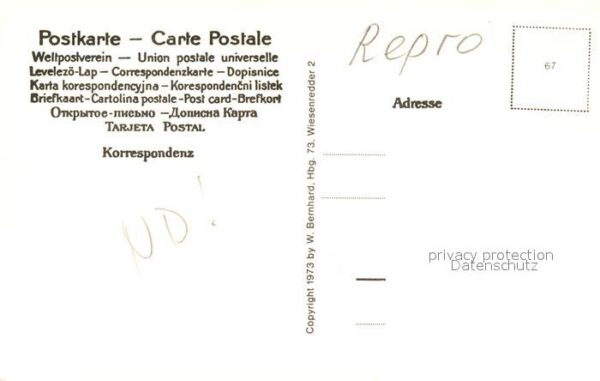 Postkarte – Carte Postale
Weltpostverein — Union postale universelle
Levelező-Lap – Correspondenzkarte – Dopisnice
Karta korespondencyjna – Korespondenční listek
Briefkaart–Cartolina postale–Post card–Brefkort
Открытое-письмо —Дописна Карта
Tarjeta Postal
Korrespondenz
ND!
Copyright 1973 by W. Bernhard. Hbg. 73, Wiesenredder 2
Repro
67
Adresse
privacy protection
Datenschutz